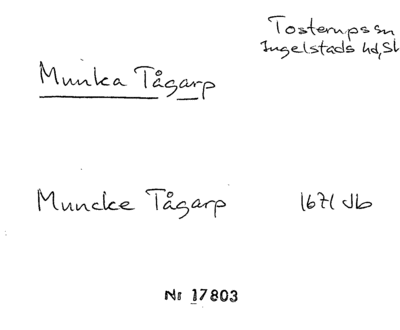 Tosterups sn
Ingelstads hd, Sk
Munka Tågarp
Muncke Tågarp 1671 Jb
Nr 17803